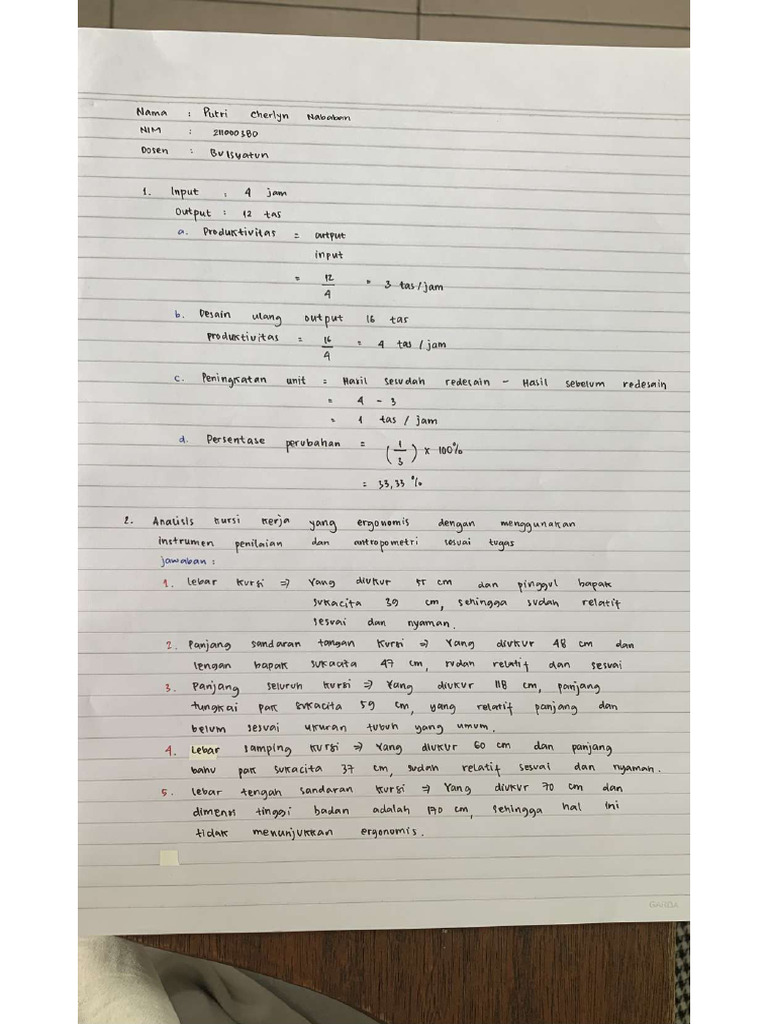 Nama : Putri Cherlyn Nababan
NIM : 211000380
Dosen : Bu Isyatun
1. Input : 4 jam
Output : 12 tas
a. Produktivitas = output
input
= 12/4 = 3 tas/jam
b. Desain ulang output 16 tas
Produktivitas = 16/4 = 4 tas / jam
c. Peningkatan unit = Hasil sesudah redesain - Hasil sebelum redesain
= 4 - 3
= 1 tas / jam
d. Persentase perubahan = (1/3) x 100%
= 33,33 %
2. Analisis kursi kerja yang ergonomis dengan menggunakan
instrumen penilaian dan antropometri sesuai tugas
jawaban :
1. Lebar kursi => Yang diukur 55 cm dan pinggul bapak
sukacita 39 cm, sehingga sudah relatif
sesuai dan nyaman.
2. Panjang sandaran tangan kursi => Yang diukur 48 cm dan
lengan bapak sukacita 47 cm, sudah relatif dan sesuai
3. Panjang seluruh kursi => Yang diukur 118 cm, panjang
tungkai pak sukacita 59 cm, yang relatif panjang dan
belum sesuai ukuran tubuh yang umum.
4. Lebar samping kursi => Yang diukur 60 cm dan panjang
bahu pak sukacita 37 cm, sudah relatif sesuai dan nyaman.
5. Lebar tengah sandaran kursi => Yang diukur 70 cm dan
dimensi tinggi badan adalah 170 cm, sehingga hal ini
tidak menunjukkan ergonomis.